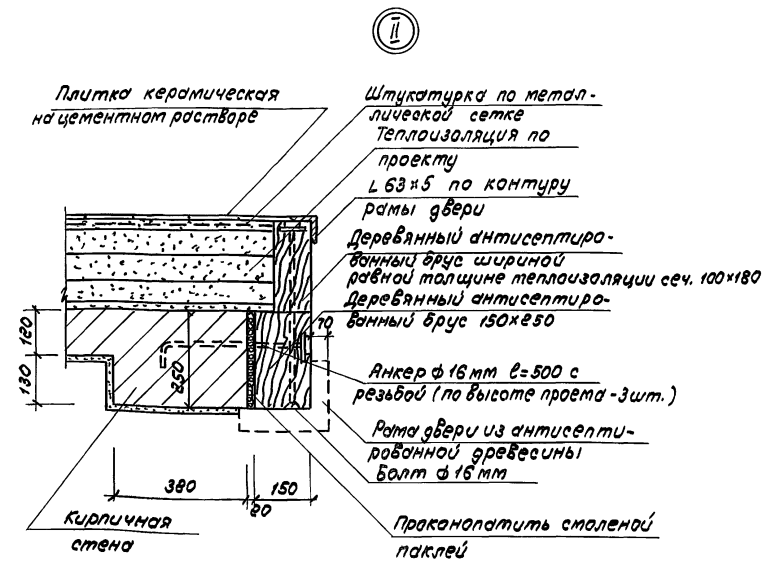 II
Плитка керамическая
на цементном растворе
Штукатурка по метал-
лической сетке
Теплоизоляция по
проекту
L 63×5 по контуру
рамы двери
Деревянный антисептиро-
ванный брус шириной
равной толщине теплоизоляции сеч. 100×180
Деревянный антисептиро-
ванный брус 150×250
70
120
130
250
Анкер ф 16 мм l=500 с
резьбой (по высоте проема -3шт.)
Рама двери из антисепти-
рованной древесины
Болт ф 16 мм
380
20
150
Кирпичная
стена
Проконопатить смоленой
паклей